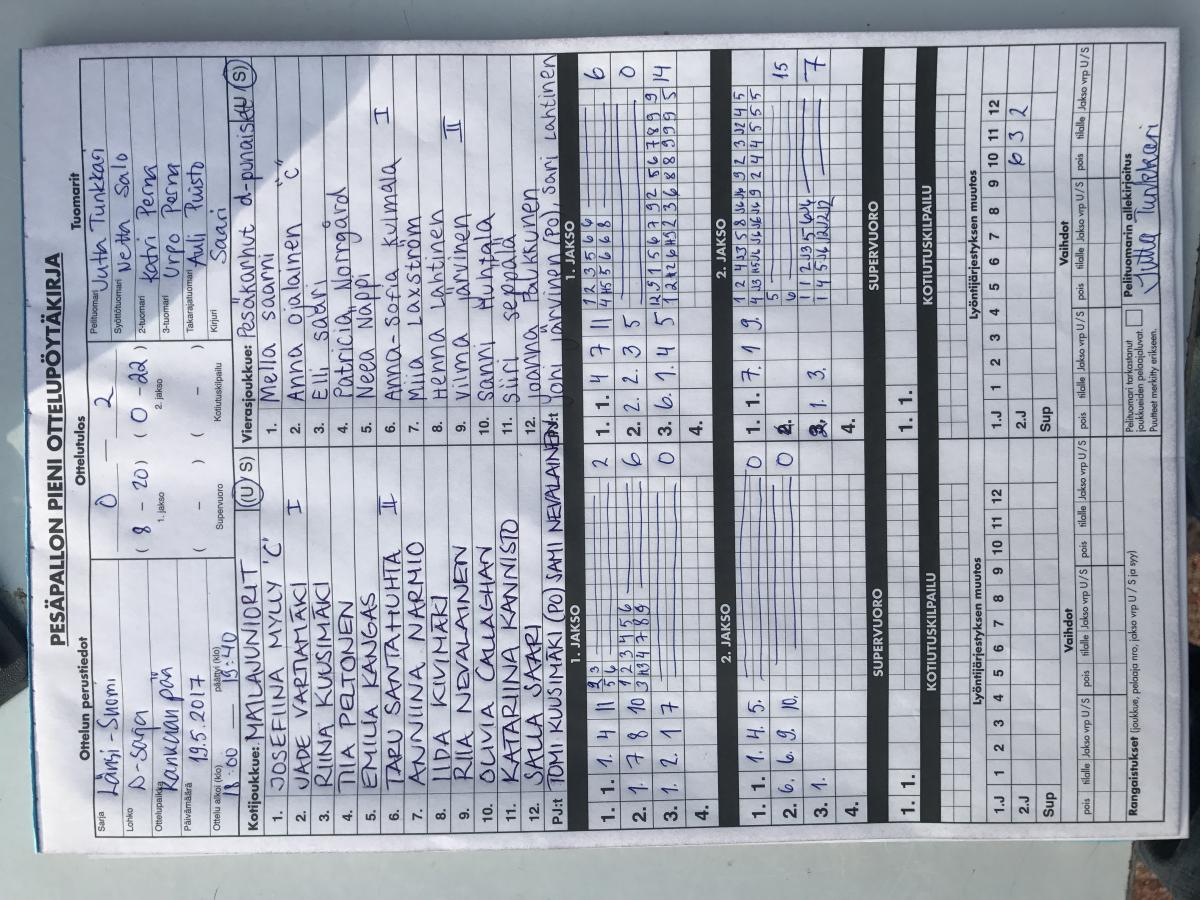 PESÄPALLON PIENI OTTELUPÖYTÄKIRJA
Ottelun perustiedot
Sarja Länsi-Suomi
Lohko D-sarja
Ottelupaikka Kankaanpää
Päivämäärä 19.5.2017
Ottelu alkoi (klo) 18:00 päättyi (klo) 19:40
Ottelutulos
0 – 2
( 8 – 20 ) ( 0 – 22 )
1. jakso 2. jakso
( – ) ( – )
Supervuoro Kotiutuskilpailu
Tuomarit
Pelituomari Jutta Tunkkari
Syöttötuomari Netta Salo
2-tuomari Katri Perna
3-tuomari Urpo Perna
Takarajatuomari Auli Puisto
Kirjuri Saari
Kotijoukkue: MAILAJUNIORIT (U S)
1. JOSEFIINA MYLLY "C"
2. JADE VARTAMÄKI I
3. RIINA KUUSIMÄKI
4. TIIA PELTONEN
5. EMILIA KANGAS
6. TARU SANTAHUHTA II
7. ANNIINA NARMIO
8. IIDA KIVIMÄKI
9. RIIA NEVALAINEN
10. OLIVIA CALLAGHAN
11. KATARIINA KANNISTO
12. SALLA SAARI
PJ:t TOMI KUUSIMÄKI (PO) SAMI NEVALAINEN
Vierasjoukkue: Pesäkarhut d-punaiset (U S)
1. Mella Saarni
2. Anna Ojalainen "C"
3. Elli Saari
4. Patricia Norrgård
5. Neea Näppi
6. Anna-Sofia Kulmala I
7. Miia Laxström
8. Henna Lahtinen
9. Vilma Järvinen II
10. Sanni Huhtala
11. Siiri Seppälä
12. Joanna Paukkunen
PJ:t Joni Järvinen (PO), Sari Lahtinen
1. JAKSO
1. 1. 1. 4 11 2
2. 1. 7 8 10 6
3. 1. 2. 1 7 0
4.
1. JAKSO
1. 1. 4 7 11 6
2. 2. 2. 3 5 0
3. 6. 1. 4 5 14
4.
2. JAKSO
1. 1. 1. 4. 5. 0
2. 6. 6. 9. 10. 0
3. 1.
4.
2. JAKSO
1. 1. 7. 1 9. 15
1. 3. 7
4.
SUPERVUORO
1. 1.
SUPERVUORO
1. 1.
KOTIUTUSKILPAILU
KOTIUTUSKILPAILU
Lyöntijärjestyksen muutos
1.J 1 2 3 4 5 6 7 8 9 10 11 12
2.J
Sup
Lyöntijärjestyksen muutos
1.J 1 2 3 4 5 6 7 8 9 10 11 12
2.J 6 3 2
Sup
Vaihdot
pois tilalle Jakso vrp U/S pois tilalle Jakso vrp U/S pois tilalle Jakso vrp U/S
Vaihdot
pois tilalle Jakso vrp U/S pois tilalle Jakso vrp U/S pois tilalle Jakso vrp U/S
Rangaistukset (joukkue, pelaaja nro, jakso vrp U / S ja syy)
Pelituomari tarkastanut
joukkueiden pelaajaluvat.
Puutteet merkitty erikseen.
Pelituomarin allekirjoitus
Jutta Tunkkari